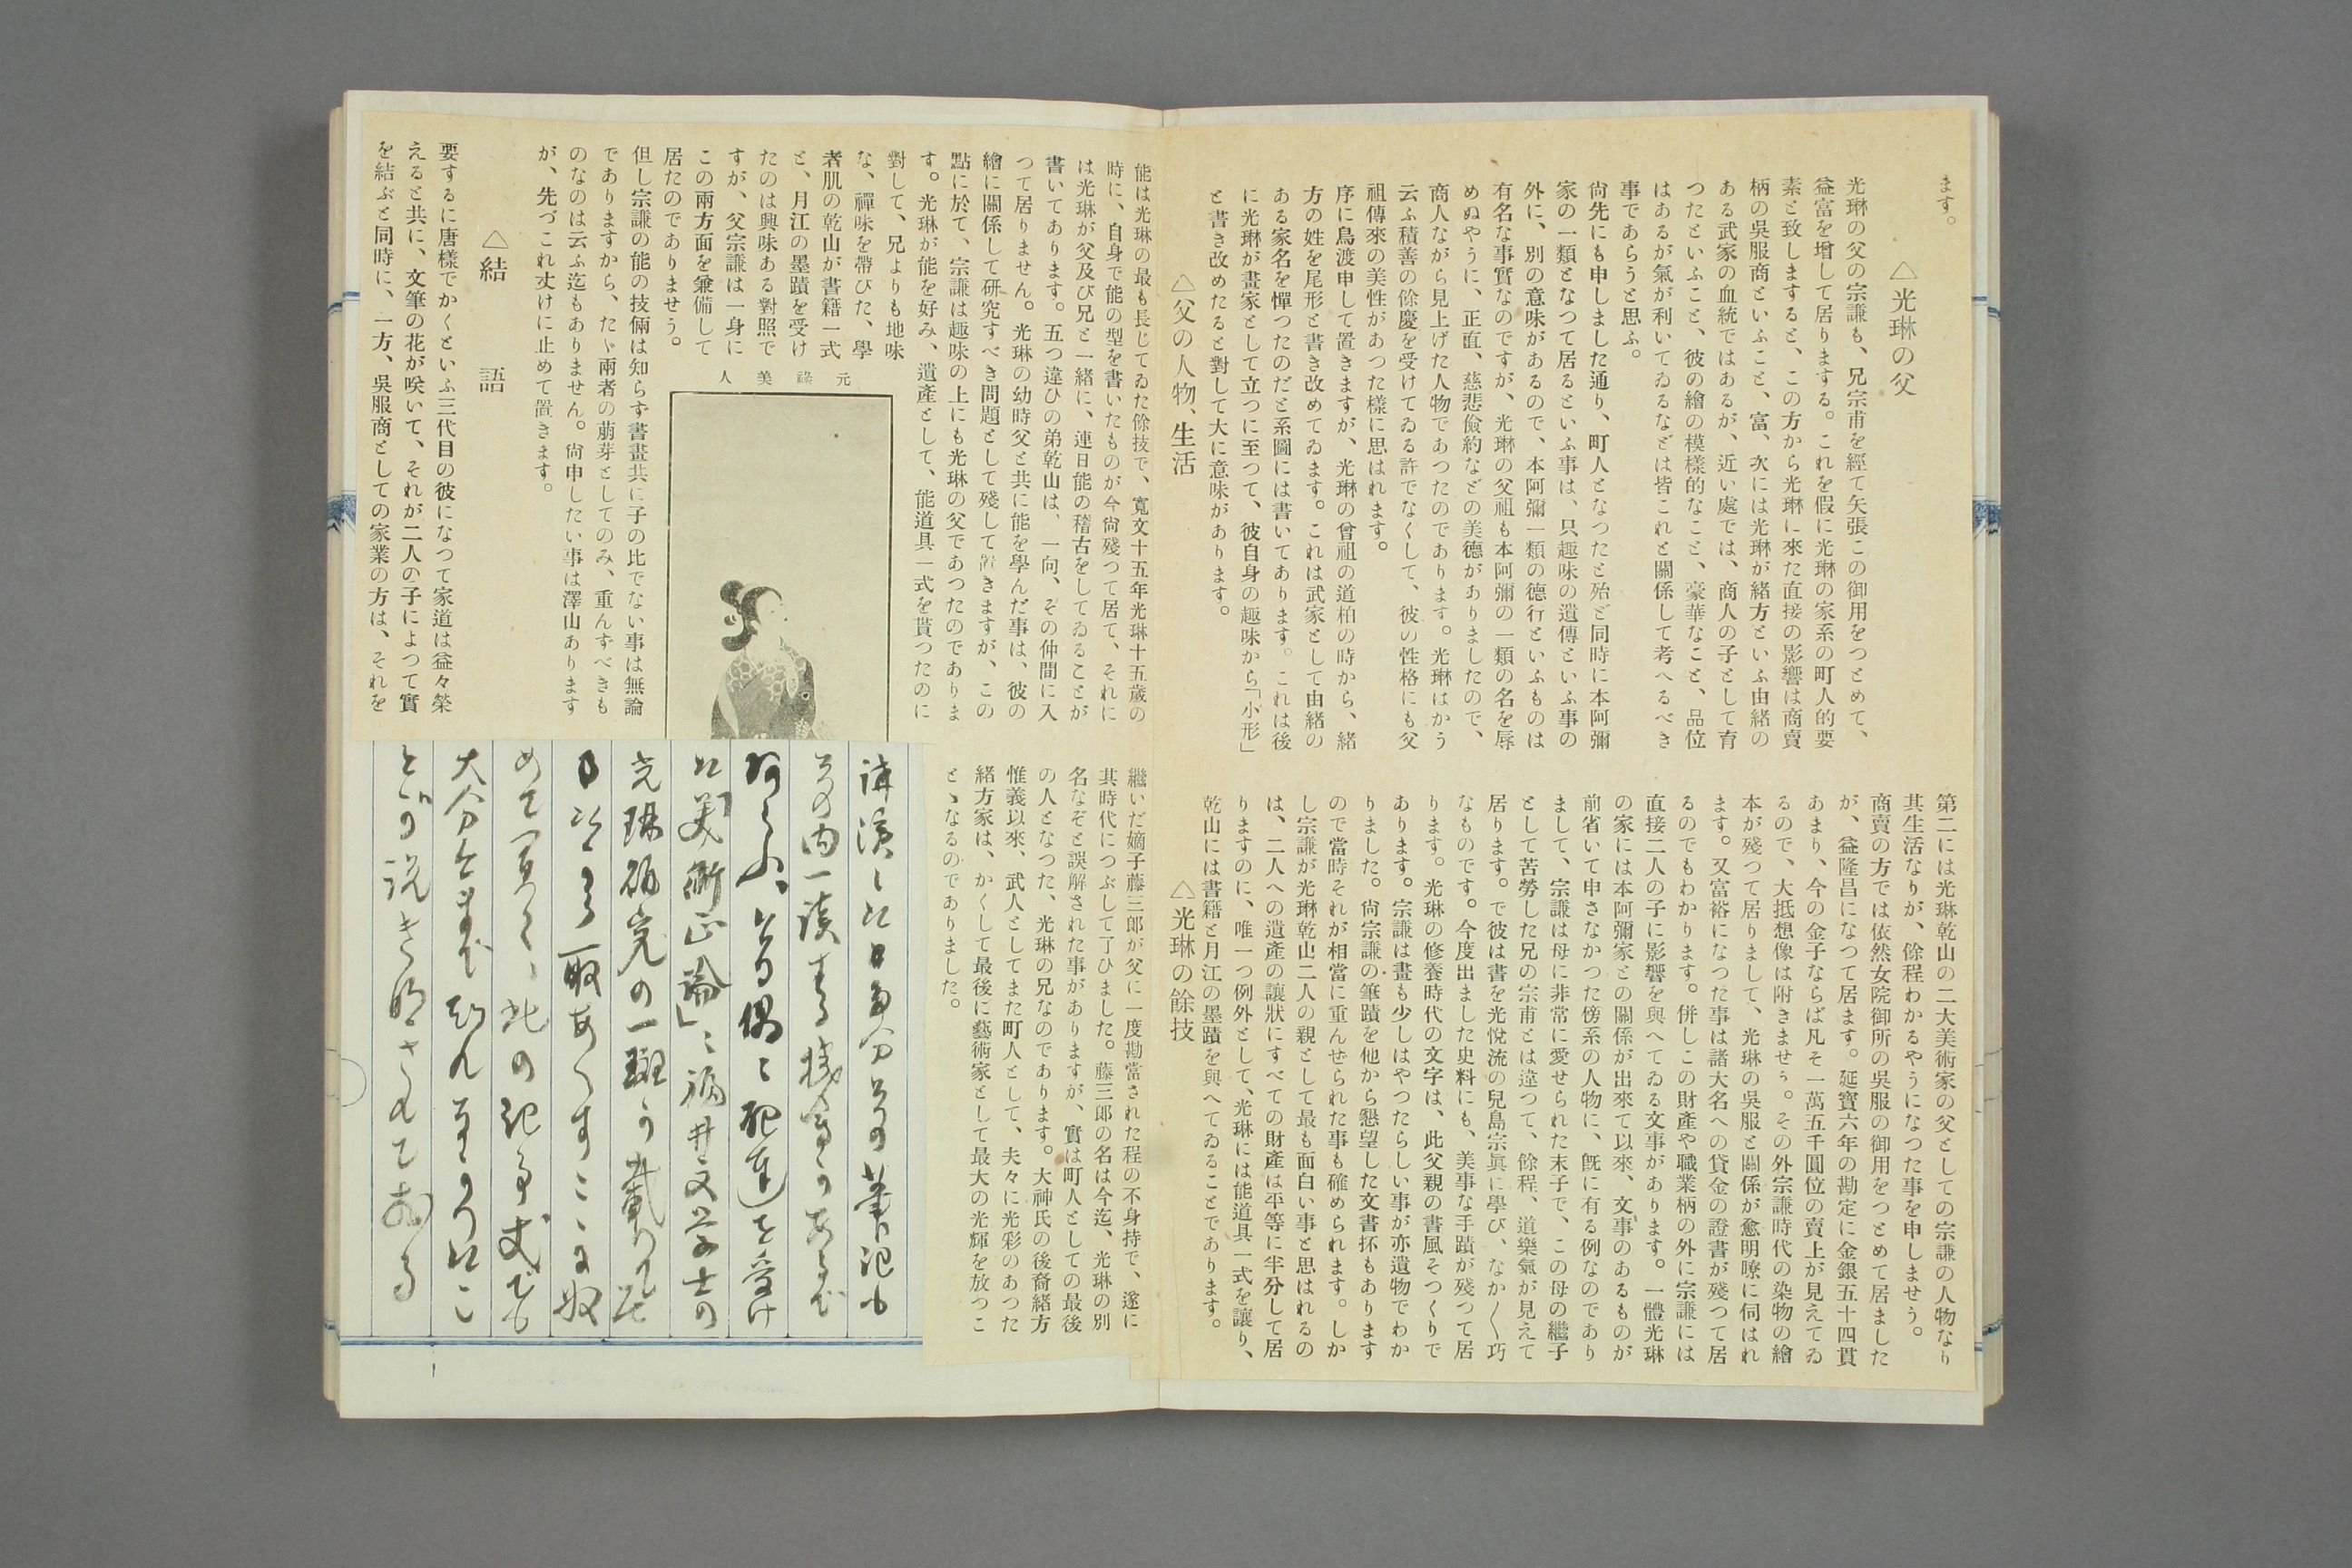 ます。
△光琳の父
光琳の父の宗謙も、兄宗甫を經て矢張この御用をつとめて、
益富を増して居りまする。これを假に光琳の家系の町人的要
素と致しますると、この方から光琳に來た直接の影響は商賣
柄の吳服商といふこと、富、次には光琳が緒方といふ由緒の
ある武家の血統ではあるが、近い處では、商人の子として育
つたといふこと、彼の繪の模樣的なこと、豪華なこと、品位
はあるが氣が利いてゐるなどは皆これと關係して考へるべき
事であらうと思ふ。
尙先にも申しました通り、町人となつたと殆ど同時に本阿彌
家の一類となつて居るといふ事は、只趣味の遺傳といふ事の
外に、別の意味があるので、本阿彌一類の德行といふものは
有名な事實なのですが、光琳の父祖も本阿彌の一類の名を辱
めぬやうに、正直、慈悲儉約などの美德がありましたので、
商人ながら見上げた人物であつたのであります。光琳はかう
云ふ積善の餘慶を受けてゐる許でなくして、彼の性格にも父
祖傳來の美性があつた樣に思はれます。
序に鳥渡申して置きますが、光琳の曾祖の道柏の時から、緒
方の姓を尾形と書き改めてゐます。これは武家として由緒の
ある家名を憚つたのだと系圖には書いてあります。これは後
に光琳が畫家として立つに至つて、彼自身の趣味から「小形」
と書き改めたると對して大に意味があります。
△父の人物、生活
第二には光琳乾山の二大美術家の父としての宗謙の人物なり
其生活なりが、餘程わかるやうになつた事を申しませう。
商賣の方では依然女院御所の吳服の御用をつとめて居ました
が、益隆昌になつて居ます。延寶六年の勘定に金銀五十四貫
あまり、今の金子ならば凡そ一萬五千圓位の賣上が見えてゐ
るので、大抵想像は附きませう。その外宗謙時代の染物の繪
本が殘つて居りまして、光琳の吳服と關係が愈明瞭に伺はれ
ます。又富裕になつた事は諸大名への貸金の證書が殘つて居
るのでもわかります。併しこの財產や職業柄の外に宗謙には
直接二人の子に影響を與へてゐる文事があります。一體光琳
の家には本阿彌家との關係が出來て以來、文事のあるものが
前省いて申さなかつた傍系の人物に、旣に有る例なのであり
まして、宗謙は母に非常に愛せられた末子で、この母の繼子
として苦勞した兄の宗甫とは違つて、餘程、道樂氣が見えて
居ります。で彼は書を光悅流の兒島宗眞に學び、なか〱巧
なものです。今度出ました史料にも、美事な手蹟が殘つて居
ります。光琳の修養時代の文字は、此父親の書風そつくりで
あります。宗謙は畫も少しはやつたらしい事が亦遺物でわか
りました。尙宗謙の筆蹟を他から懇望した文書抔もあります
ので當時それが相當に重んぜられた事も確められます。しか
し宗謙が光琳乾山二人の親として最も面白い事と思はれるの
は、二人への遺產の讓狀にすべての財產は平等に半分して居
りますのに、唯一つ例外として、光琳には能道具一式を讓り、
乾山には書籍と月江の墨蹟を與へてゐることであります。
△光琳の餘技
能は光琳の最も長じてゐた餘技で、寬文十五年光琳十五歲の
時に、自身で能の型を書いたものが今尙殘つて居て、それに
は光琳が父及び兄と一緖に、連日能の稽古をしてゐることが
書いてあります。五つ違ひの弟乾山は、一向、その仲間に入
つて居りません。光琳の幼時父と共に能を學んだ事は、彼の
繪に關係して硏究すべき問題として殘して置きますが、この
點に於て、宗謙は趣味の上にも光琳の父であつたのでありま
す。光琳が能を好み、遺產として、能道具一式を貰つたのに
對して、兄よりも地味
な、禪味を帶びた、學
者肌の乾山が書籍一式
と、月江の墨蹟を受け
たのは興味ある對照で
すが、父宗謙は一身に
この兩方面を兼備して
居たのでありませう。
元祿美人
但し宗謙の能の技倆は知らず書畫共に子の比でない事は無論
でありますから、たゞ兩者の萠芽としてのみ、重んずべきも
のなのは云ふ迄もありません。尙申したい事は澤山あります
が、先づこれ丈けに止めて置きます。
△結　語
要するに唐樣でかくといふ三代目の彼になつて家道は益々榮
えると共に、文筆の花が咲いて、それが二人の子によつて實
を結ぶと同時に、一方、吳服商としての家業の方は、それを
繼いだ嫡子藤三郞が父に一度勘當された程の不身持で、遂に
其時代につぶして了ひました。藤三郞の名は今迄、光琳の別
名なぞと誤解された事がありますが、實は町人としての最後
の人となつた、光琳の兄なのであります。大神氏の後裔緒方
惟義以來、武人としてまた町人として、夫々に光彩のあつた
緒方家は、かくして最後に藝術家として最大の光輝を放つこ
とゝなるのでありました。
の内一讀する
偶〻
「美術正論」〻福井文学士の
光琳硏究の一斑
此の記事
大分
説き